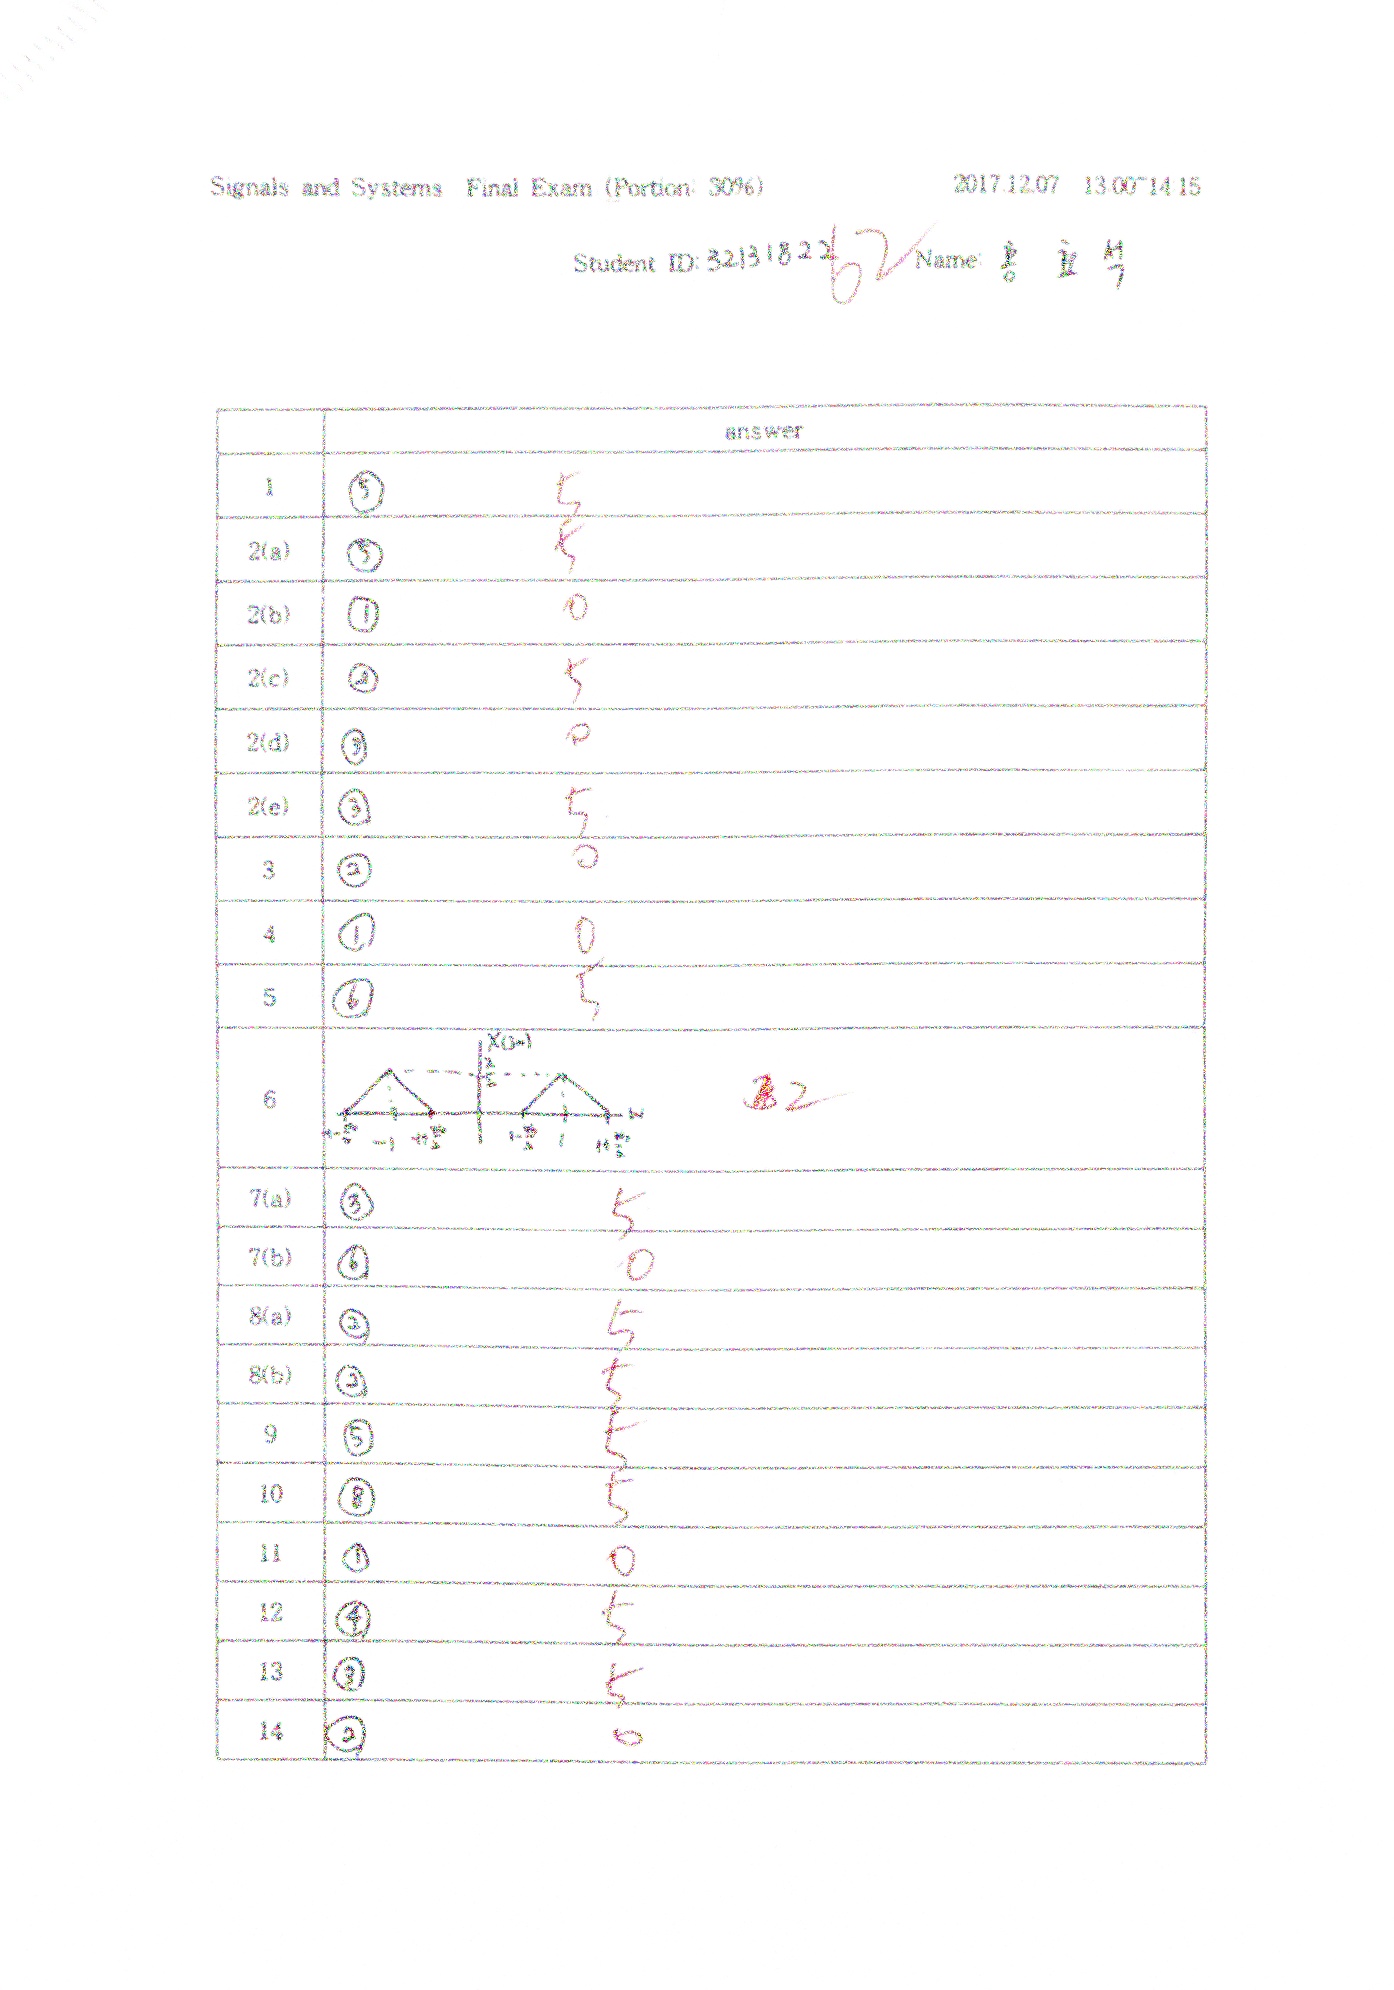 Signals and Systems Final Exam (Portion: 30%) 2017.12.07 13:00~14:15
Student ID: 32131822 62 Name:
answer
1 ⑤ 5
2(a) ⑤ 5
2(b) ① 0
2(c) ② 5
2(d) ③ 0
2(e) ③ 5
3 ② 0
4 ① 0
5 ⑥ 5
X(jω)
6 2
-1 1 ω
7(a) ③ 5
7(b) ⑥ 0
8(a) ② 5
8(b) ② 5
9 ⑤ 5
10 ⑧ 5
11 ① 0
12 ④ 5
13 ③ 5
14 ② 0